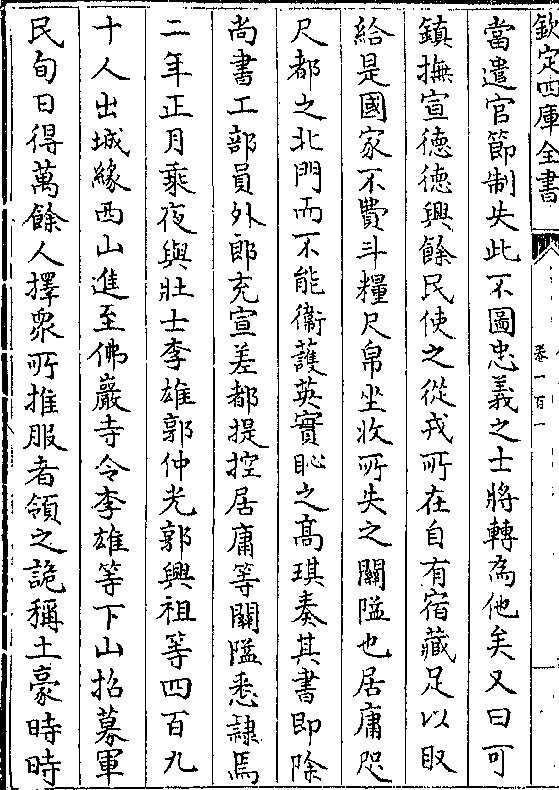 欽定四庫全書
卷一百一
當遣官節制失此不圖忠義之士將轉為他矣又曰可
鎮撫宣德德興餘民使之從戎所在自有宿藏足以取
給是國家不費斗糧尺帛坐收所失之關隘也居庸咫
尺都之北門而不能衛䕶英實恥之髙琪奏其書即除
尚書工部員外郎充宣差都提控居庸等關隘悉隷焉
二年正月乘夜與壯士李雄郭仲光郭興祖等四百九
十人出城緣西山進至佛巖寺令李雄等下山招募軍
民旬日得萬餘人擇衆所推服者領之詭稱土豪時時